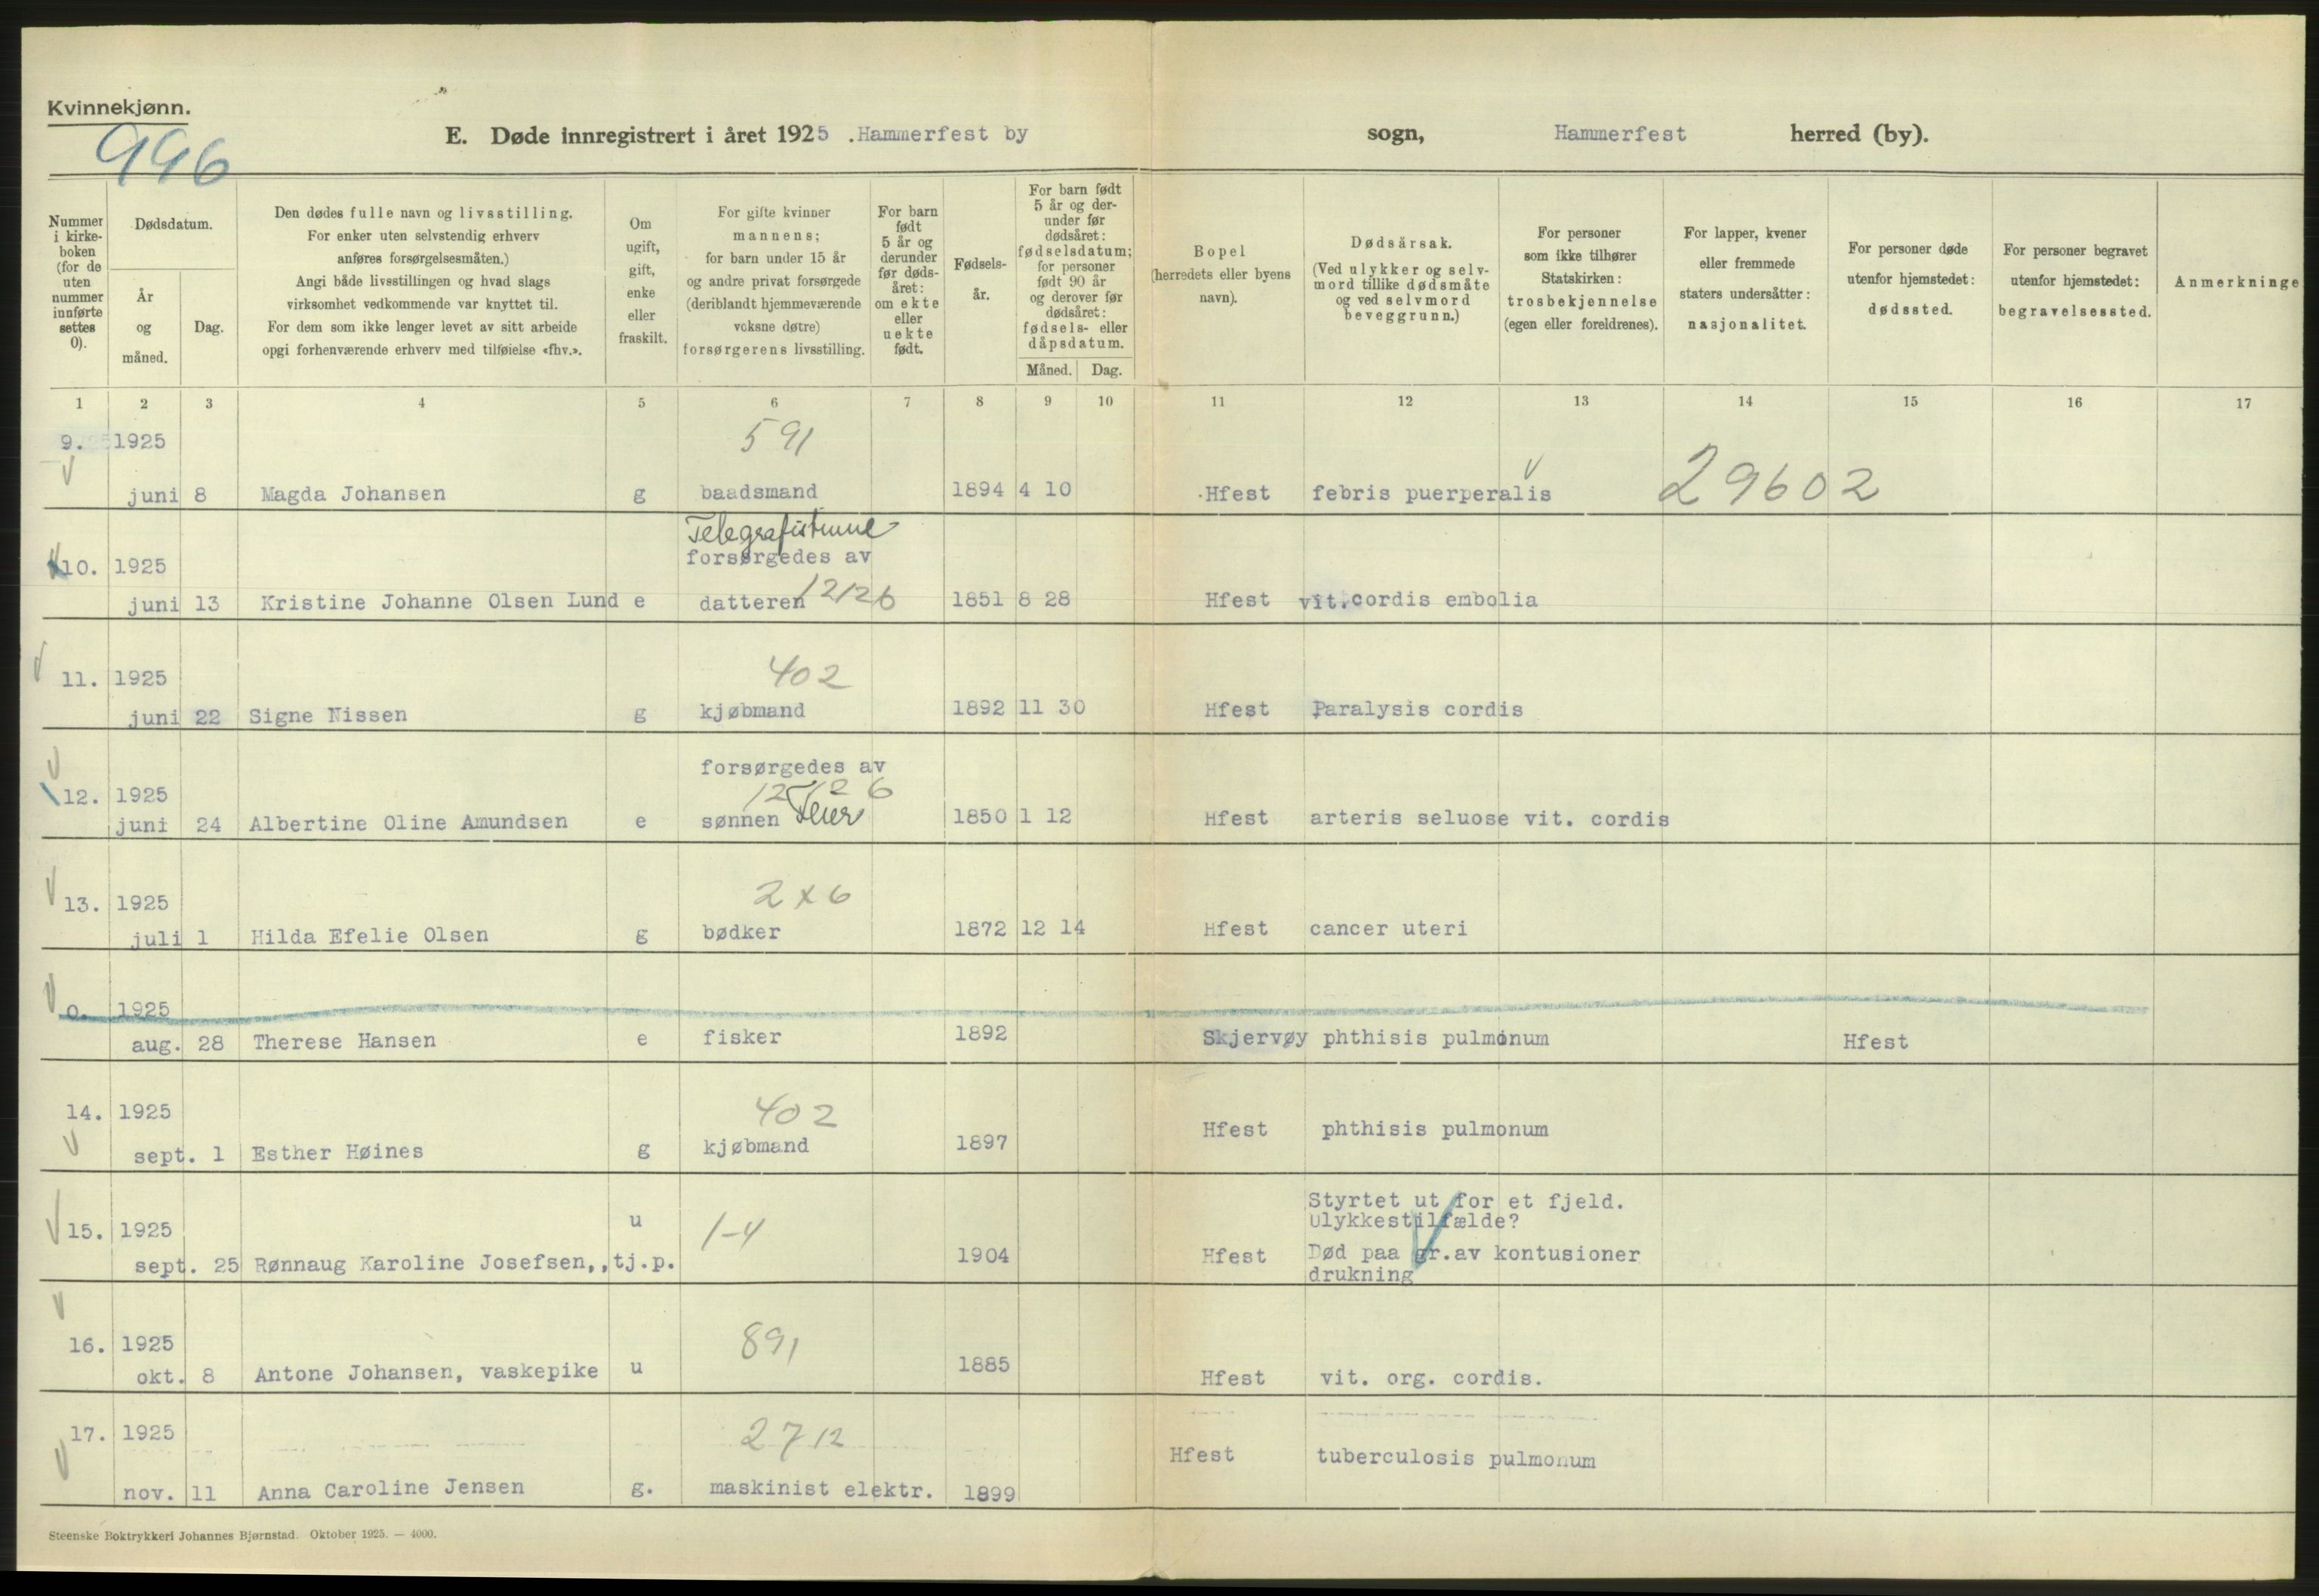 Kvinnekjønn.
996
E. Døde innregistrert i året 1925 .Hammerfest by sogn, Hammerfest herred (by).
Nummer i kirke- boken (for de uten nummer innførte settes 0).
Dødsdatum.
År og måned.
Dag.
Den dødes fulle navn og livsstilling.
For enker uten selvstendig erhverv
anføres forsørgelsesmåten.)
Angi både livsstillingen og hvad slags
virksomhet vedkommende var knyttet til.
For dem som ikke lenger levet av sitt arbeide
opgi forhenværende erhverv med tilføielse «fhv.».
Om ugift, gift, enke eller fraskilt.
For gifte kvinner
mannens;
for barn under 15 år
og andre privat forsørgede
(deriblandt hjemmeværende
voksne døtre)
forsørgerens livsstilling.
For barn født 5 år og derunder før døds- året: om ekte eller uekte født.
Fødsels- år.
For barn født 5 år og der- under før dødsåret: fødselsdatum; for personer født 90 år og derover før dødsåret: fødsels- eller dåpsdatum.
Måned. Dag.
Bopel
(herredets eller byens
navn).
Dødsårsak.
(Ved ulykker og selv-
mord tillike dødsmåte
og ved selvmord
beveggrunn.)
For personer
som ikke tilhører
Statskirken:
trosbekjennelse
(egen eller foreldrenes).
For lapper, kvener
eller fremmede
staters undersåtter:
nasjonalitet.
For personer døde
utenfor hjemstedet:
dødssted.
For personer begravet
utenfor hjemstedet:
begravelsessted.
Anmerkninge
1 2 3 4 5 6 7 8 9 10 11 12 13 14 15 16 17
9. 1925 591
juni 8 Magda Johansen g baadsmand 1894 4 10 Hfest febris puerperalis 29602
Telegrafistinne
10. 1925 forsørgedes av
juni 13 Kristine Johanne Olsen Lund e datteren 12126 1851 8 28 Hfest vit.cordis embolia
11. 1925 402
juni 22 Signe Nissen g kjøbmand 1892 11 30 Hfest Paralysis cordis
forsørgedes av
12. 1925 12126
juni 24 Albertine Oline Amundsen e sønnen 1850 1 12 Hfest arteris seluose vit. cordis
13. 1925 2x6
juli 1 Hilda Efelie Olsen g bødker 1872 12 14 Hfest cancer uteri
0. 1925
aug. 28 Therese Hansen e fisker 1892 Skjervøy phthisis pulmonum Hfest
14. 1925 402
sept. 1 Esther Høines g kjøbmand 1897 Hfest phthisis pulmonum
Styrtet ut for et fjeld.
15. 1925 u 1-4 Ulykkestilfælde?
sept. 25 Rønnaug Karoline Josefsen,,tj.p. 1904 Hfest Død paa gr.av kontusioner
drukning
16. 1925 891
okt. 8 Antone Johansen, vaskepike u 1885 Hfest vit. org. cordis.
17. 1925 2712
nov. 11 Anna Caroline Jensen g. maskinist elektr. 1899 Hfest tuberculosis pulmonum
Steenske Boktrykkeri Johannes Bjørnstad. Oktober 1925. — 4000.